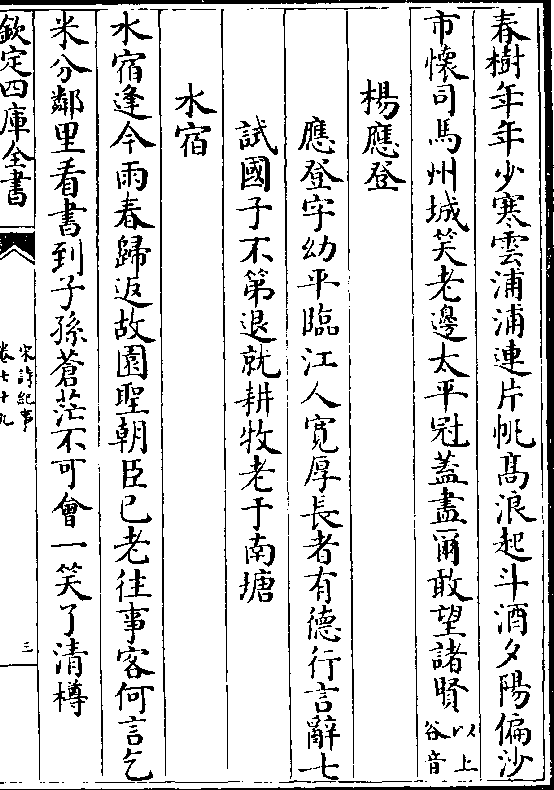 春樹年年少寒雲浦浦連片帆髙浪起斗酒夕陽偏沙
市懐司馬州城笑老邊太平冠蓋盡爾敢望諸賢以上
谷音
楊應登
應登字幼平臨江人寛厚長者有德行言辭七
試國子不第退就耕牧老于南塘
水宿
水宿逢今雨春歸返故園聖朝臣已老往事客何言乞
米分鄰里看書到子孫蒼茫不可會一笑了清樽
欽定四庫全書
宋詩紀事
卷七十九
三